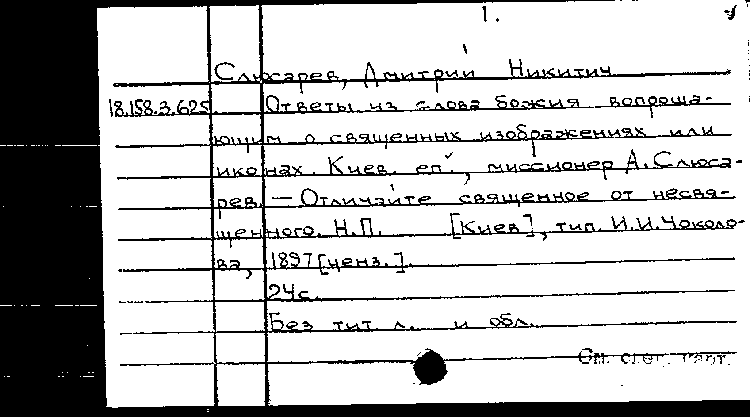 1.
Слюсарев, Дмитрий Никитич
18.158.3.625 Ответы из слова божия вопроша-
ющим о священных изображениях или
иконах. Киев. еп., миссионер Д. Слюса-
рев. — Отличайте священное от несвя-
щенного. Н.П. [Киев], тип. И.И. Чоколо-
ва, 1897 [ценз.].
24с.
Без тит. л. и обл.
См. след. карт.